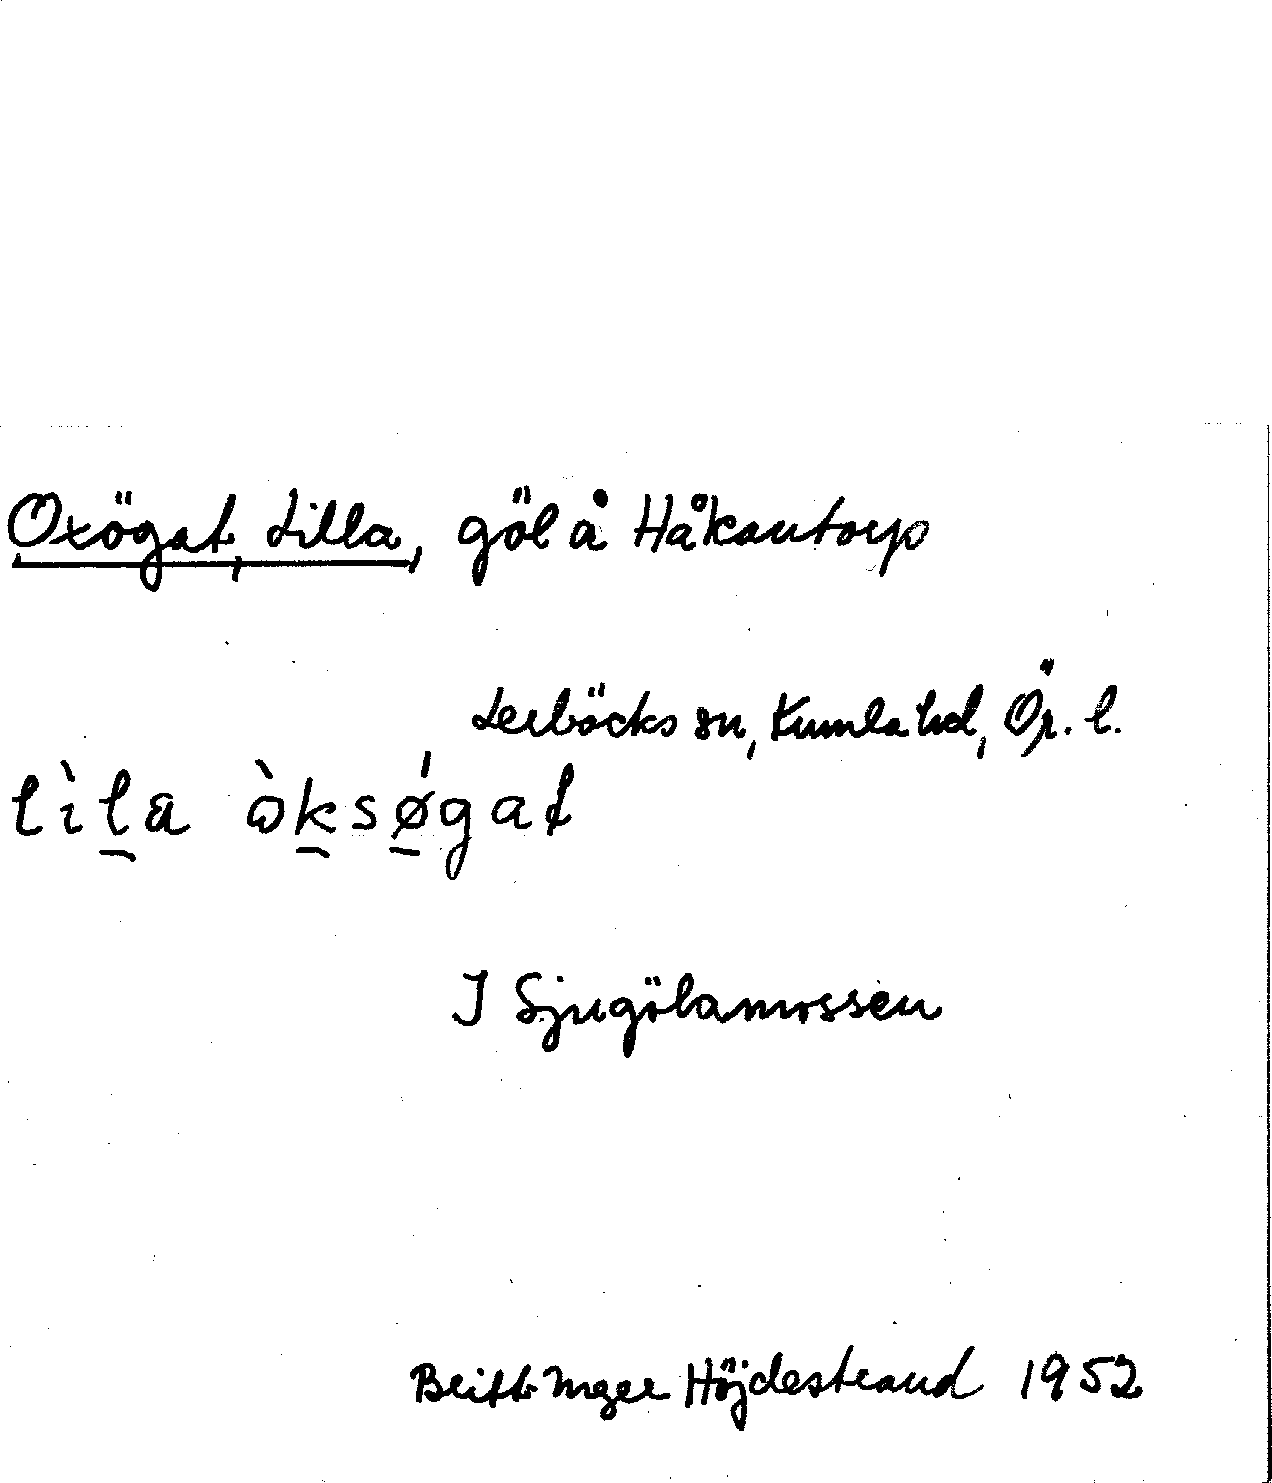 Oxögat, Lilla, göl å Håkantorp
Lerbäcks sn, Kumla hd, Ör. l.
lìl̠a òk̠sǿ̠gat
I Sjugölamossen
Britt-Inger Höjdestrand 1952